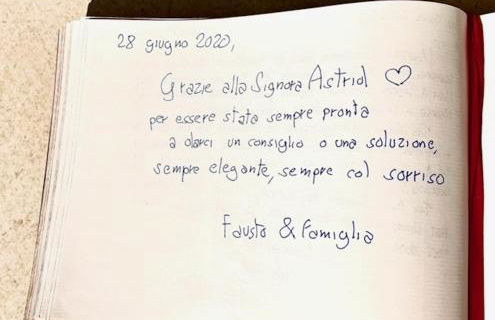 28 giugno 2020,
Grazie alla Signora Astrid ♡
per essere stata sempre pronta
a darci un consiglio o una soluzione,
sempre elegante, sempre col sorriso
Fausto & Famiglia